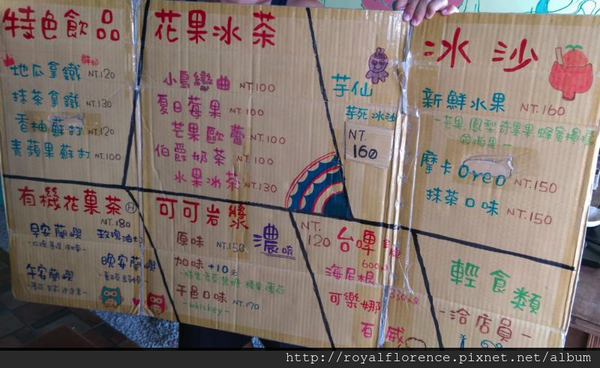 特色飲品
地瓜拿鐵 NT.120
抹茶拿鐵 NT.130
香柚蘇打 NT.120
青蘋果蘇打 NT.100
花果冰茶
小鳥戀曲 NT.100
夏日莓果 NT.160
芒果歐蕾 NT.100
伯爵奶茶 NT.100
水果冰茶 NT.130
芋仙
芋死冰沙
NT.
160
冰沙
新鮮水果 NT.160
摩卡Oreo NT.150
抹茶口味 NT.150
有機花菓茶 H
NT.180
早安蘭嶼
晚安蘭嶼
午安蘭嶼
可可岩漿
原味 NT.150
濃
加味+10元
干邑口味 NT.170
-whiskey-
NT.
120
台啤
海尼根
可樂娜
輕食類
-洽店員-
http://royalflorence.pixnet.net/album